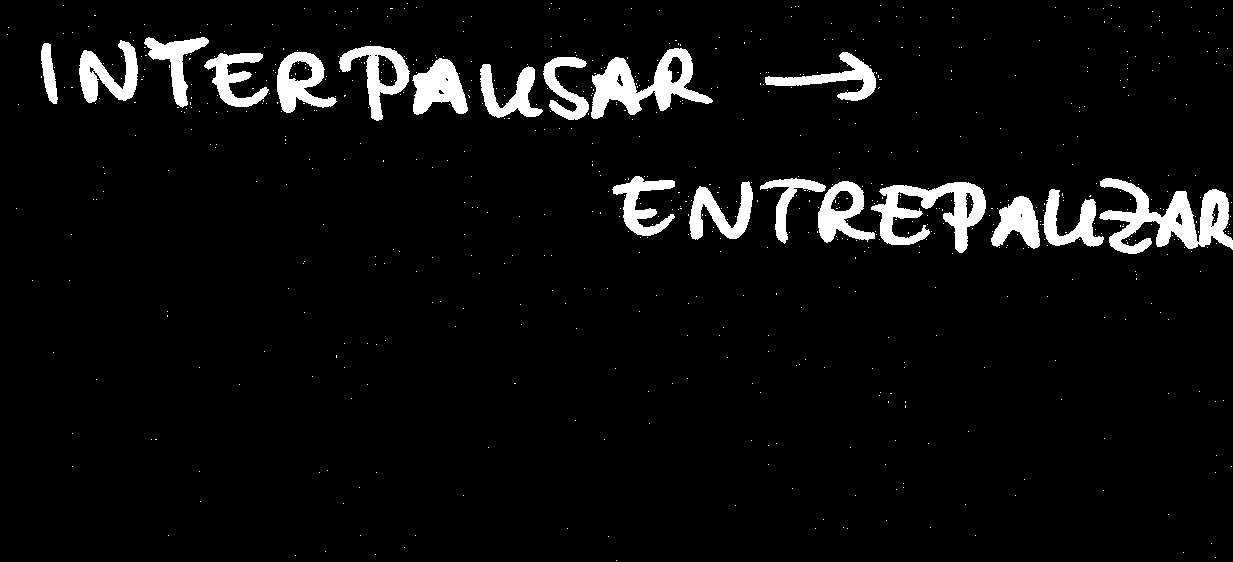 INTERPAUSAR →
ENTREPAUZAR